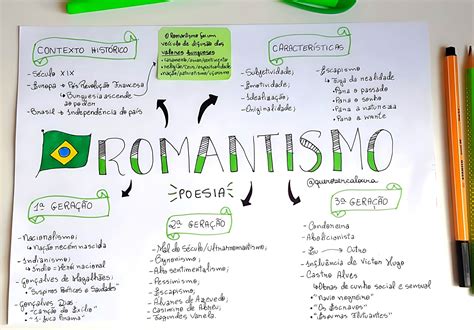 CONTEXTO HISTÓRICO
- Século XIX
- Europa → Pós Revolução Francesa
↳ Burguesia ascende ao poder
- Brasil → Independência do país
O Romantismo foi um
veículo de difusão dos
valores burgueses
CARACTERÍSTICAS
- Subjetividade;
- Emotividade;
- Idealização;
- Originalidade;
- Escapismo
↳ Fuga da realidade
Para o passado
Para o sonho
Para a natureza
Para a morte
ROMANTISMO
POESIA
1ª GERAÇÃO
- Nacionalismo;
↳ Nação recém nascida
- Indianismo;
↳ Índio = Herói nacional
- Gonçalves de Magalhães;
↳ "Suspiros Poéticos e Saudades"
- Gonçalves Dias;
↳ "Canção do Exílio"
↳ "I-Juca Pirama"
2ª GERAÇÃO
- Mal do Século/Ultrarromantismo;
- Byronismo;
- Alto sentimentalismo;
- Pessimismo;
- Escapismo;
- Álvares de Azevedo;
- Casimiro de Abreu;
- Fagundes Varela.
3ª GERAÇÃO
- Condoreira
- Abolicionista
- Eu → Outro
- Influência de Victor Hugo
- Castro Alves
↳ Obras de cunho social e sensual
↳ "Navio negreiro"
↳ "Os Escravos"
↳ "Espumas Flutuantes"